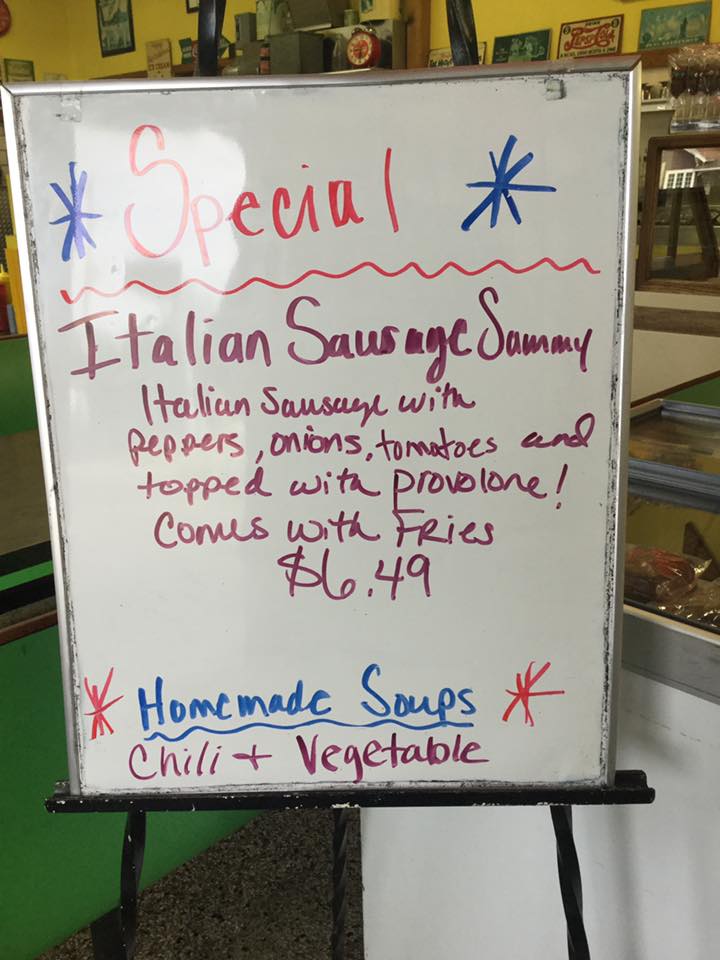 Special
Italian Sausage Sammy
Italian Sausage with
peppers, onions, tomatoes and
topped with provolone!
Comes with Fries
$6.49
Homemade Soups
Chili + Vegetable